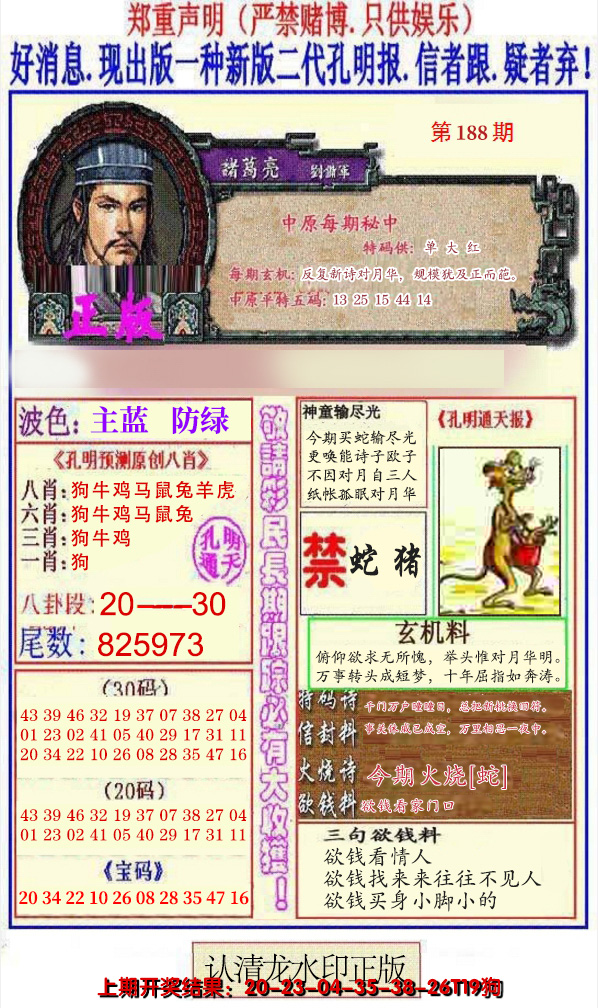 郑重声明（严禁赌博.只供娱乐）
好消息.现出版一种新版二代孔明报.信者跟.疑者弃！
第188期
諸葛亮 劉備軍
中原每期秘中
特码供：单大红
每期玄机：反复新诗对月华，规模犹及正而葩。
中原平特五码：13 25 15 44 14
正版
波色：主蓝 防绿
《孔明预测原创八肖》
八肖：狗牛鸡马鼠兔羊虎
六肖：狗牛鸡马鼠兔
三肖：狗牛鸡
一肖：狗
孔明
通天
八卦段：20——30
尾数：825973
（30码）
43 39 46 32 19 37 07 38 27 04
01 23 02 41 05 40 29 17 31 11
20 34 22 10 26 08 28 35 47 16
（20码）
43 39 46 32 19 37 07 38 27 04
01 23 02 41 05 40 29 17 31 11
《宝码》
20 34 22 10 26 08 28 35 47 16
敬請彩民長期跟踪必有大收獲！
神童输尽光
今期买蛇输尽光
更唤能诗子欧子
不因对月自三人
纸帐孤眠对月华
《孔明通天报》
禁 蛇 猪
玄机料
俯仰欲求无所愧，举头惟对月华明。
万事转头成短梦，十年屈指如奔涛。
特码诗 千门万户曈曈日，总把新桃换旧符。
信封料 事关休戚已成空，万里相思一夜中。
火烧诗 今期火烧[蛇]
欲钱料 欲钱看家门口
三句欲钱料
欲钱看情人
欲钱找来来往往不见人
欲钱买身小脚小的
认清龙水印正版
上期开奖结果：20-23-04-35-38-26T19狗